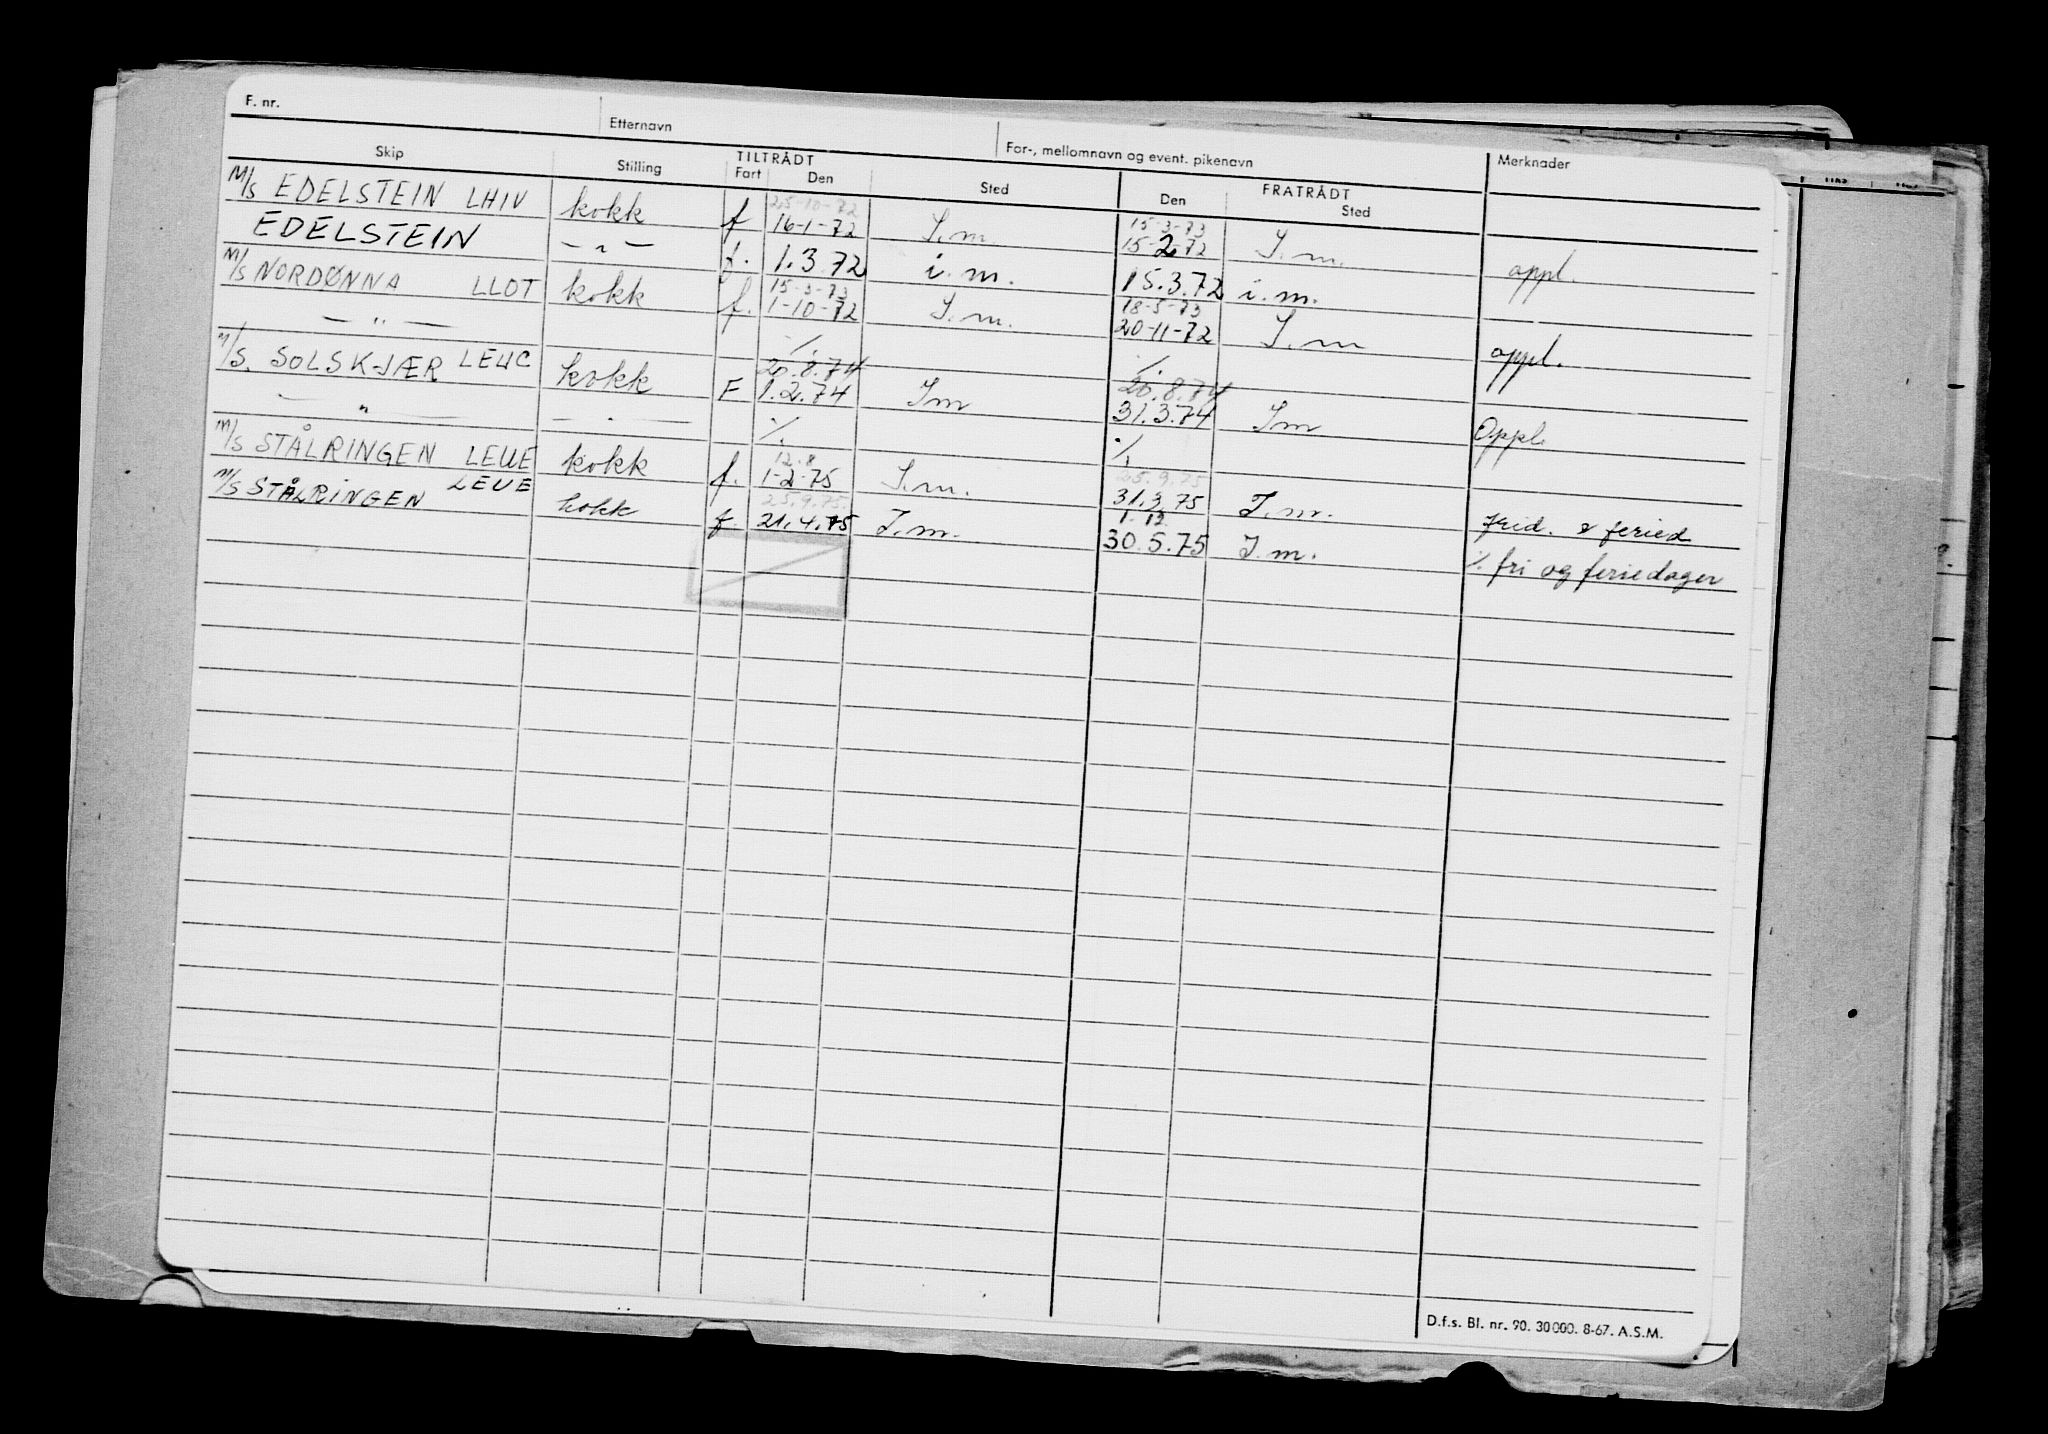 F. nr.
Etternavn
For-, mellomnavn og event. pikenavn
Merknader
Skip
Stilling
TILTRÅDT
Fart
Den
Sted
FRATRÅDT
Den
Sted
25-10-72 15-3-73
M/S EDELSTEIN LHIV kokk f 16-1-72 I.m. 15-2-72 I.m. appl.
EDELSTEIN — " — f. 1.3.72 i.m. 15.3.72 i.m.
15-3-73 18-5-73
M/S NORDØNNA LLOT kokk f. 1-10-72 I.m. 20-11-72 I.m appl.
— " — ./. ./.
20.8.74 20.8.74
M/S. SOLSKJÆR LEUC kokk F 1.2.74 Im 31.3.74 Im Oppl.
— " — — " — ./. ./.
12.8 25.9.75
M/S STÅLRINGEN LEUE kokk f. 1-2-75 I.m. 31.3.75 I.m. frid. & feried
25.9.75. 1.12.
M/S STÅLRINGEN LEUE kokk f. 21.4.75 I.m. 30.5.75 I.m. ./. fri og feriedager
D.f.s. Bl. nr. 90. 30 000. 8-67. A.S.M.